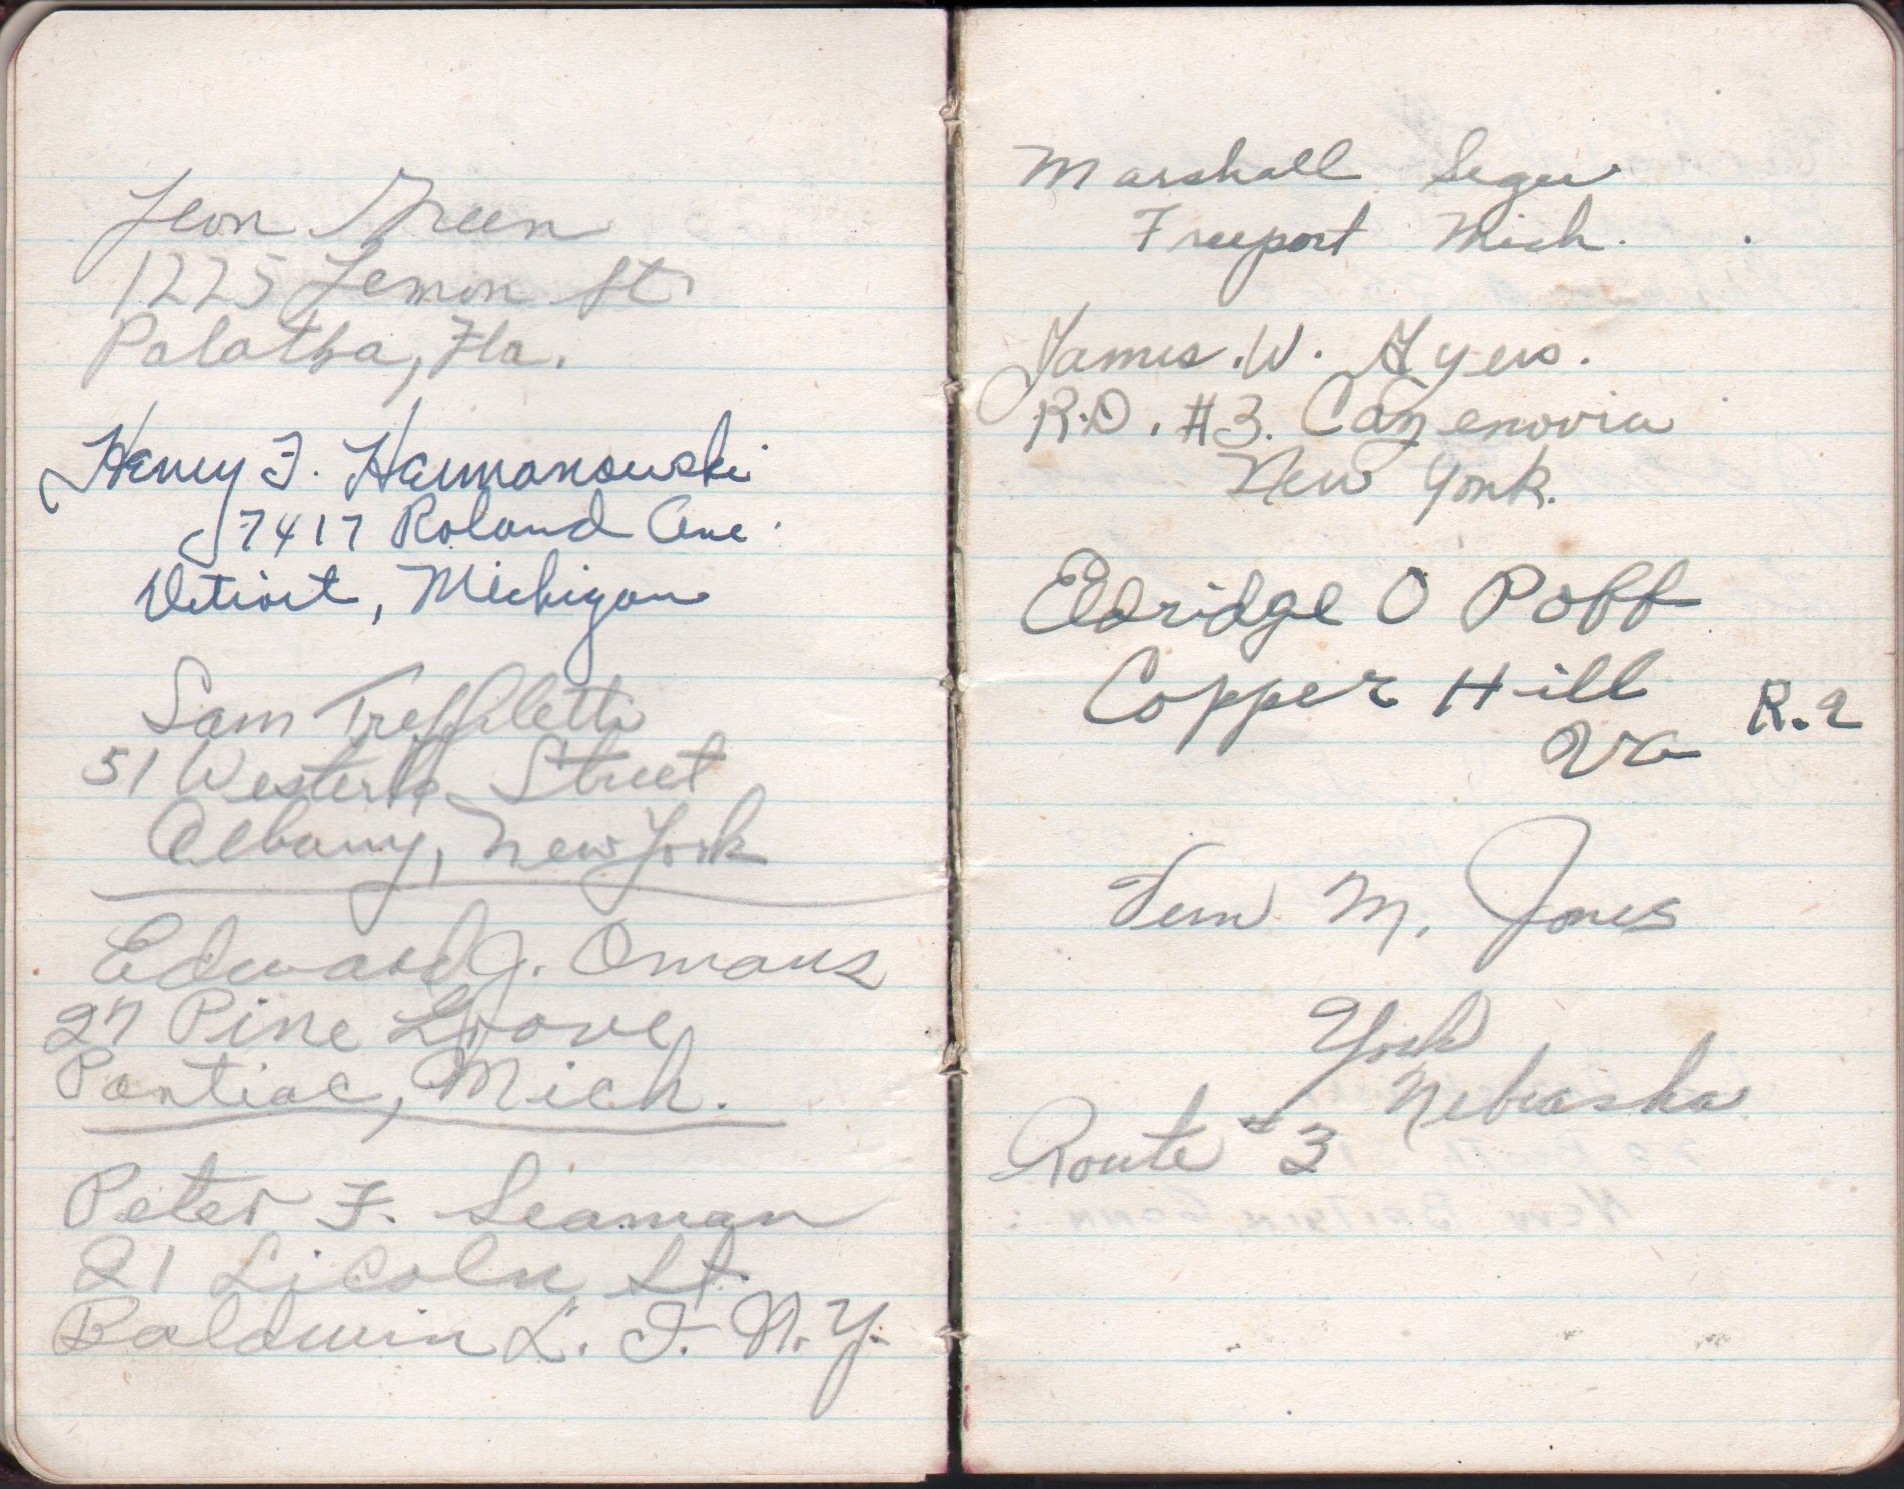 Leon Green
1225 Lemon St.
Palatka, Fla.
Henry F. Hermanowski
17417 Roland Ave.
Detroit, Michigan
Sam Treffiletti
51 Westerlo Street
Albany, New York
Edward J. Omans
27 Pine Grove
Pontiac, Mich.
Peter F. Seaman
21 Licoln St.
Baldwin L. I. N. Y.
Marshall
Freeport Mich.
James. W. Ayers.
R.D. #3. Cazenovia
New York.
Eldridge O Poff
Copper Hill
R. 2
Va
Vern M. Jones
York
Nebraska
Route #3